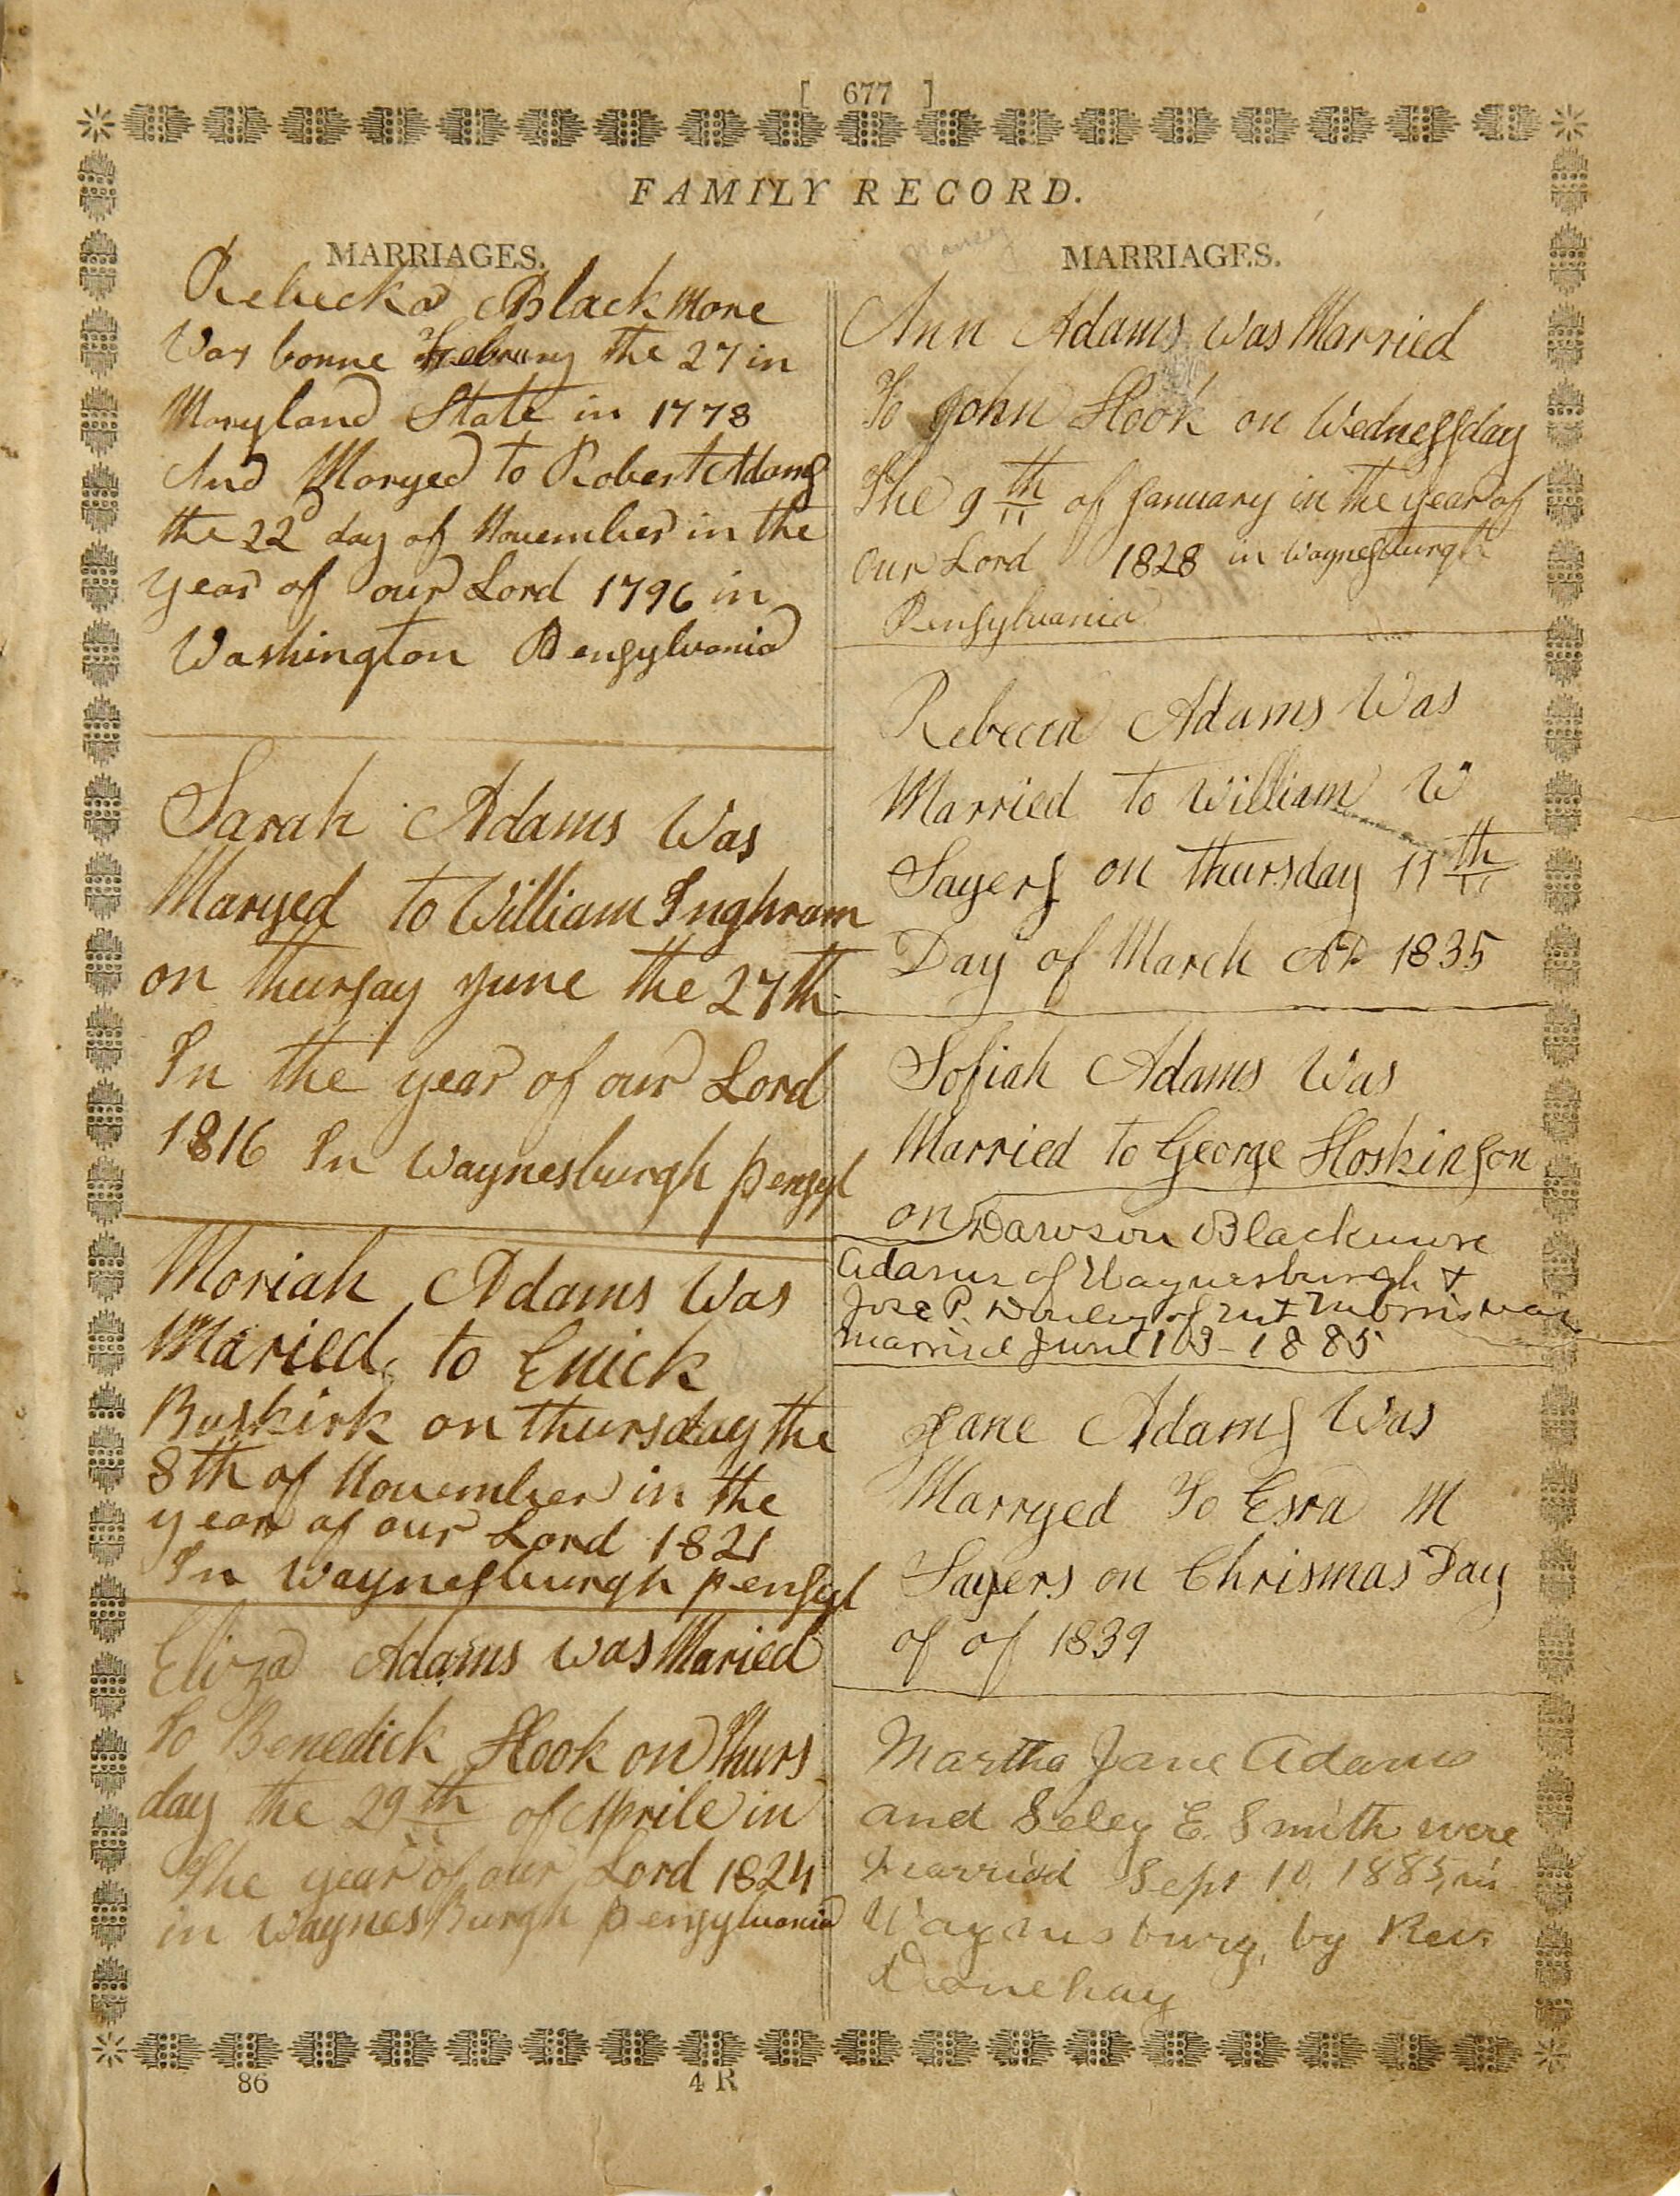 [ 677 ]
FAMILY RECORD.
MARRIAGES.
Rebecka Blackmore
Was borne Februry the 27 in
Maryland State in 1778
And Maryed to Robert Adams
the 22 day of November in the
year of our Lord 1796 in
Washington Pensylvania
Sarah Adams Was
Maryed to William Inghram
on thursay June the 27th
In the year of our Lord
1816 In Waynesburgh pensyl
Moriah Adams Was
Maried to Enick
Buskirk on thursday the
8th of November in the
year of our Lord 1821
In Waynesburgh pensyl
Eliza Adams was Maried
To Benedick Hook on Thurs
day the 29th of Aprile in
The year of our Lord 1824
in WaynesBurgh pensylvania
MARRIAGES.
Nancy
Ann Adams was Married
To John Hook on Wednessday
The 9th of January in the year of
our Lord 1828 in Waynesburgh
Pensylvania
Rebecca Adams Was
Married to William W
Sayers on thursday 11th
Day of March AD 1835
Sofiah Adams Was
Married to George Hoskinson
on Dawson Blackmore
Adams of Waynesburgh &
Jose P. of Mt Morris was
married June 1885
Jane Adams Was
Marryed To Esra M
Sayers on Chrismas Day
of of 1839
Martha Jane Adams
and Seley E. Smith were
married Sept 10, 1885, in
Waynesburg, by Rev.
Donehay
86 4 R